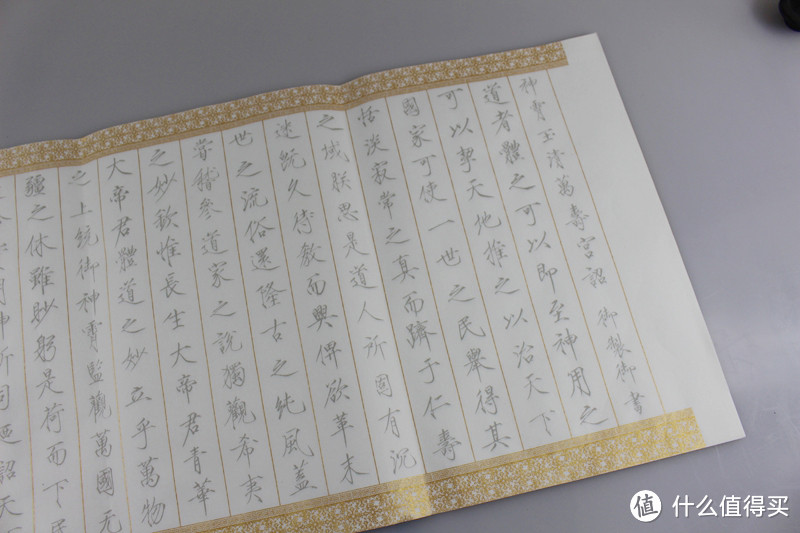 神霄玉清萬壽宮詔 御製御書
道者體之可以即至神用之
可以挈天地推之以治天下
國家可使一世之民眾得其
恬淡寂常之真而躋于仁壽
之域朕思是道人所固有沉
迷既久待教而興俾欲革末
世之流俗還隆古之純風蓋
嘗稽參道家之說獨觀希夷
之妙欽惟長生大帝君青華
大帝君體道之妙立乎萬物
之上統御神霄監觀萬國无
疆之休雖眇躬是荷而下民
明神所司迺詔天
值 什么值得买